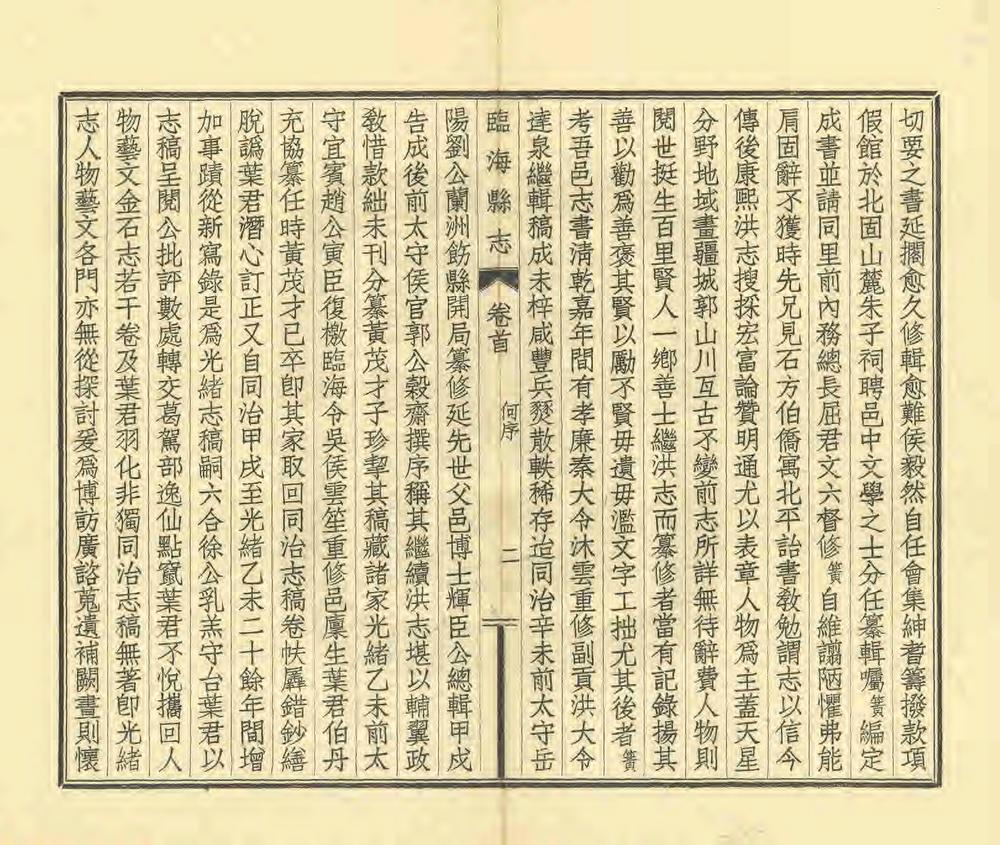 切要之書延擱愈久修輯愈難侯毅然自任會集紳耆籌撥款項
假館於北固山麓朱子祠聘邑中文學之士分任纂輯囑簧編定
成書並請同里前內務總長屈君文六督修簧自維譾陋懼弗能
肩固辭不獲時先兄見石方伯僑寓北平詒書敎勉謂志以信今
傳後康熙洪志搜採宏富論贊明通尤以表章人物爲主蓋天星
分野地域畫疆城郭山川亙古不變前志所詳無待辭費人物則
閱世挺生百里賢人一鄉善士繼洪志而纂修者當有記錄揚其
善以勸爲善褒其賢以勵不賢毋遺毋濫文字工拙尤其後者簧
考吾邑志書淸乾嘉年間有孝廉秦大令沐雲重修副貢洪大令
達泉繼輯稿成未梓咸豐兵燹散軼稀存迨同治辛未前太守岳
臨海縣志 卷首 何序 二
陽劉公蘭洲飭縣開局纂修延先世父邑博士輝臣公總輯甲戍
告成後前太守侯官郭公穀齋撰序稱其繼續洪志堪以輔翼政
敎惜款絀未刊分纂黃茂才子珍挈其稿藏諸家光緒乙未前太
守宜賓趙公寅臣復檄臨海令吳侯雲笙重修邑廩生葉君伯丹
充協纂任時黃茂才已卒卽其家取回同治志稿卷帙羼錯鈔繕
脫譌葉君潛心訂正又自同治甲戌至光緒乙未二十餘年間增
加事蹟從新寫錄是爲光緒志稿嗣六合徐公乳羔守台葉君以
志稿呈閱公批評數處轉交葛駕部逸仙點竄葉君不悅攜回人
物藝文金石志若干卷及葉君羽化非獨同治志稿無著卽光緒
志人物藝文各門亦無從探討爰爲博訪廣諮蒐遺補闕晝則懷